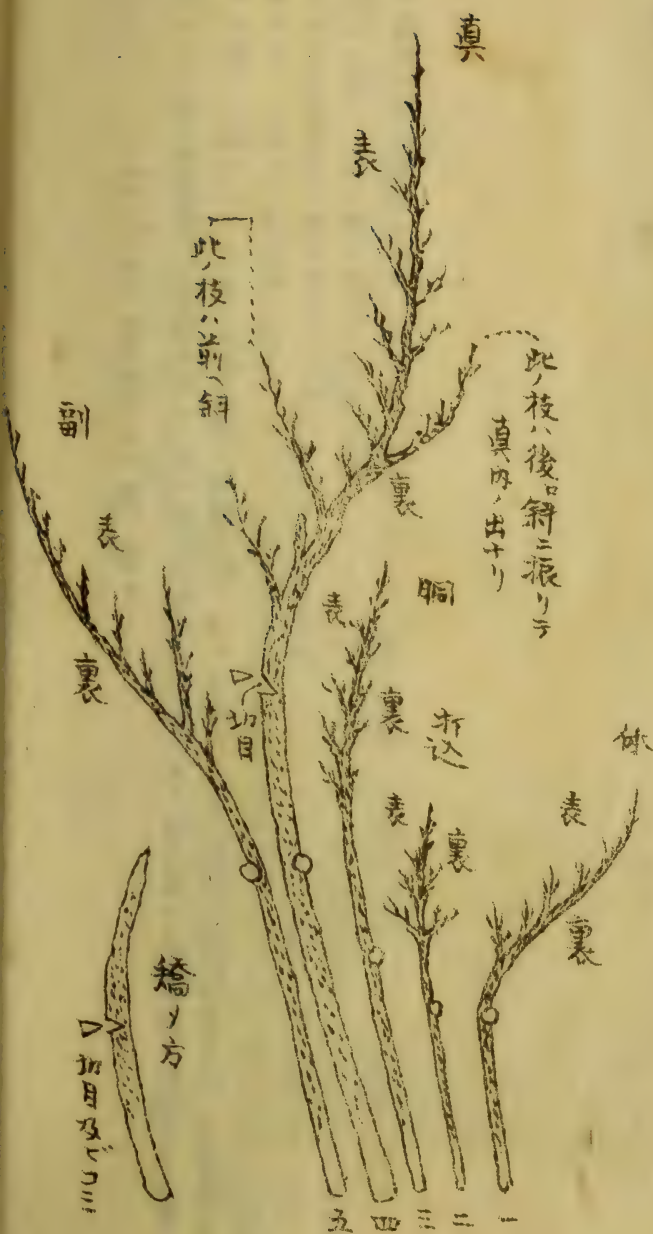 真
表
此ノ枝ハ後ロ斜ニ振リテ
真内ノ出ナリ
裏
此ノ枝ハ前ヘ斜
副
表
裏
切目
胴
表
裏
折込
表
裏
体
表
裏
矯メ方
切目及ビコミ
一
二
三
四
五